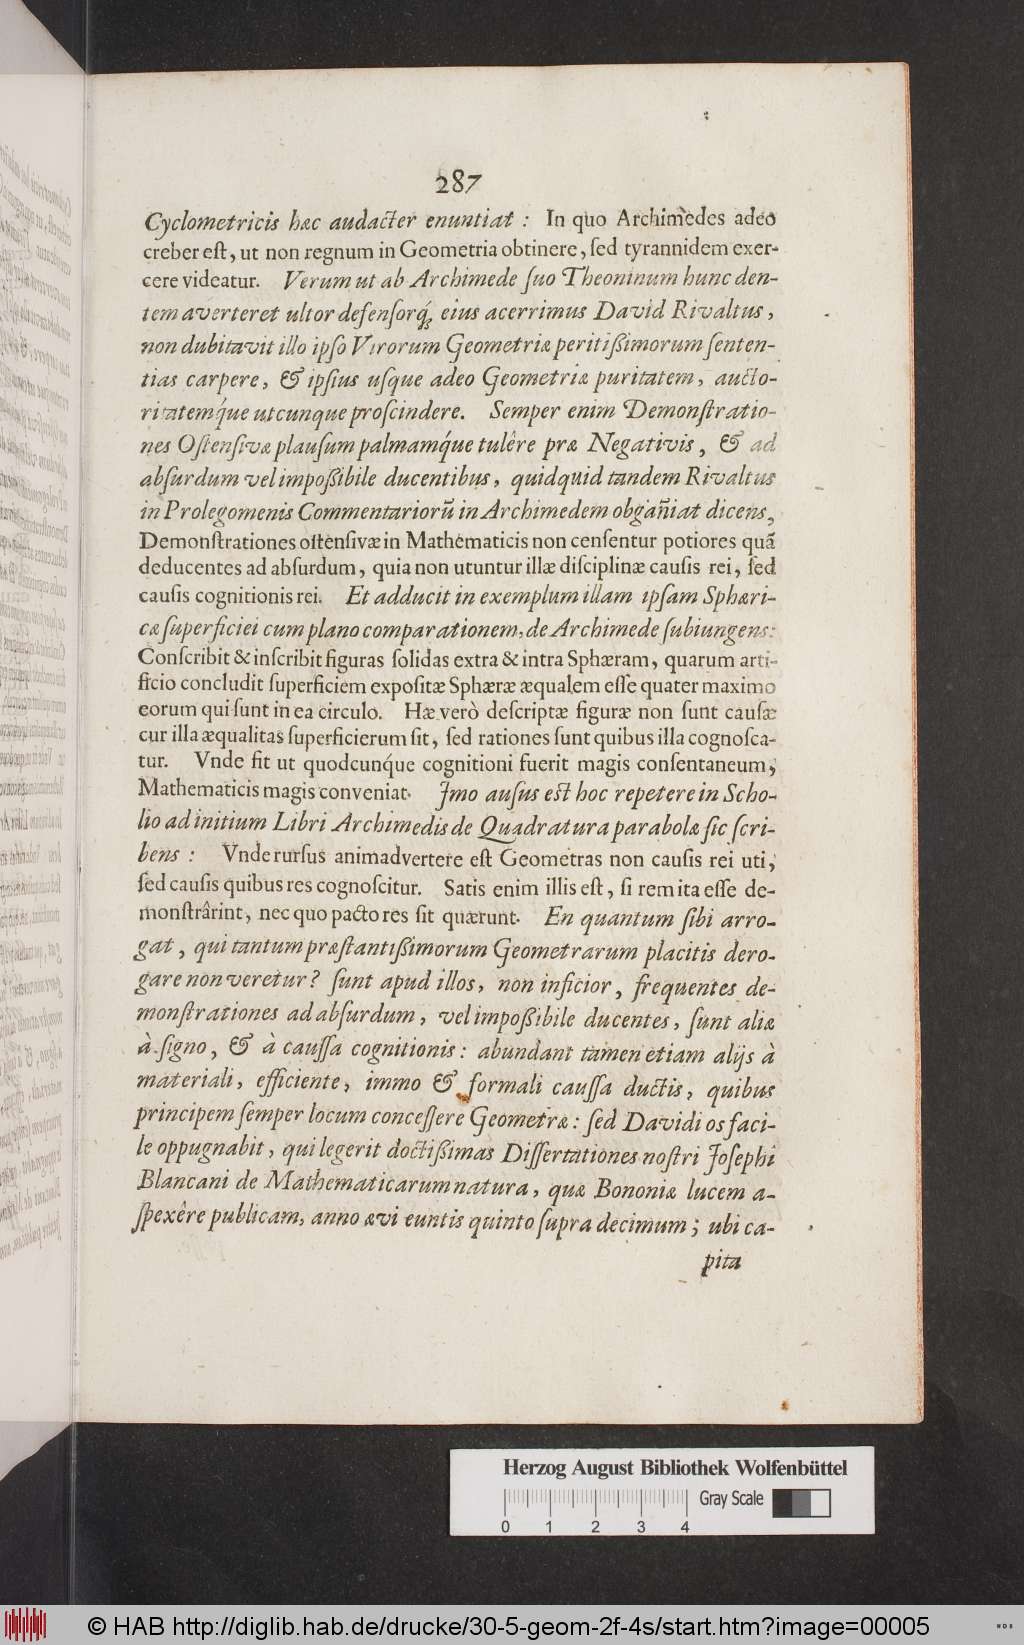 287
Cyclometricis hæc audacter enuntiat : In quo Archimedes adeo
creber eſt, ut non regnum in Geometria obtinere, ſed tyrannidem exer-
cere videatur. Verum ut ab Archimede ſuo Theoninum hunc den-
tem averteret ultor defenſorq́ꝫ eius acerrimus David Rivaltus,
non dubitavit illo ipſo Virorum Geometriæ peritißimorum ſenten-
tias carpere, & ipſius uſque adeo Geometriæ puritatem, aucto-
ritatemq́ue utcunque proſcindere. Semper enim Demonſtratio-
nes Oſtenſivæ plauſum palmamq́ue tulêre præ Negativis, & ad
abſurdum vel impoßibile ducentibus, quidquid tandem Rivaltus
in Prolegomenis Commentariorū in Archimedem obgañiat dicens,
Demonſtrationes oſtenſivæ in Mathematicis non cenſentur potiores quā
deducentes ad abſurdum, quia non utuntur illæ diſciplinæ cauſis rei, ſed
cauſis cognitionis rei. Et adducit in exemplum illam ipſam Sphæri-
cæ ſuperficiei cum plano comparationem, de Archimede ſubiungens:
Conſcribit & inſcribit figuras ſolidas extra & intra Sphæram, quarum arti-
ficio concludit ſuperficiem expoſitæ Sphæræ æqualem eſſe quater maximo
eorum qui ſunt in ea circulo. Hæ verò deſcriptæ figuræ non ſunt cauſæ
cur illa æqualitas ſuperficierum ſit, ſed rationes ſunt quibus illa cognoſca-
tur. Vnde fit ut quodcunq́ue cognitioni fuerit magis conſentaneum,
Mathematicis magis conveniat. Jmo auſus eſt hoc repetere in Scho-
lio ad initium Libri Archimedis de Quadratura parabolæ ſic ſcri-
bens : Vnde rurſus animadvertere eſt Geometras non cauſis rei uti,
ſed cauſis quibus res cognoſcitur. Satis enim illis eſt, ſi rem ita eſſe de-
monſtrârint, nec quo pacto res ſit quærunt. En quantum ſibi arro-
gat, qui tantum præſtantißimorum Geometrarum placitis dero-
gare non veretur? ſunt apud illos, non inficior, frequentes de-
monſtrationes ad abſurdum, vel impoßibile ducentes, ſunt aliæ
à ſigno, & à cauſſa cognitionis: abundant tamen etiam alijs à
materiali, efficiente, immo & formali cauſſa ductis, quibus
principem ſemper locum conceſſere Geometræ: ſed Davidi os faci-
le oppugnabit, qui legerit doctißimas Diſſertationes noſtri Joſephi
Blancani de Mathematicarum natura, quæ Bononiæ lucem a-
ſpexêre publicam, anno ævi euntis quinto ſupra decimum; ubi ca-
pita
Herzog August Bibliothek Wolfenbüttel
Gray Scale
0 1 2 3 4
© HAB http://diglib.hab.de/drucke/30-5-geom-2f-4s/start.htm?image=00005